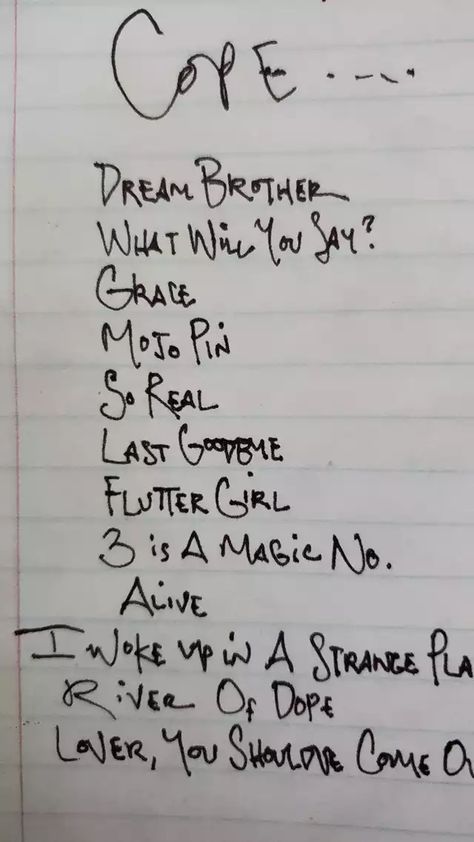 COPE .....
DREAM BROTHER
WHAT WILL YOU SAY?
GRACE
MOJO PIN
SO REAL
LAST GOODBYE
FLUTTER GIRL
3 is A MAGIC NO.
ALIVE
I WOKE UP iN A STRANGE PLA
RIVER OF DOPE
LOVER, YOU SHOULDVE COME O